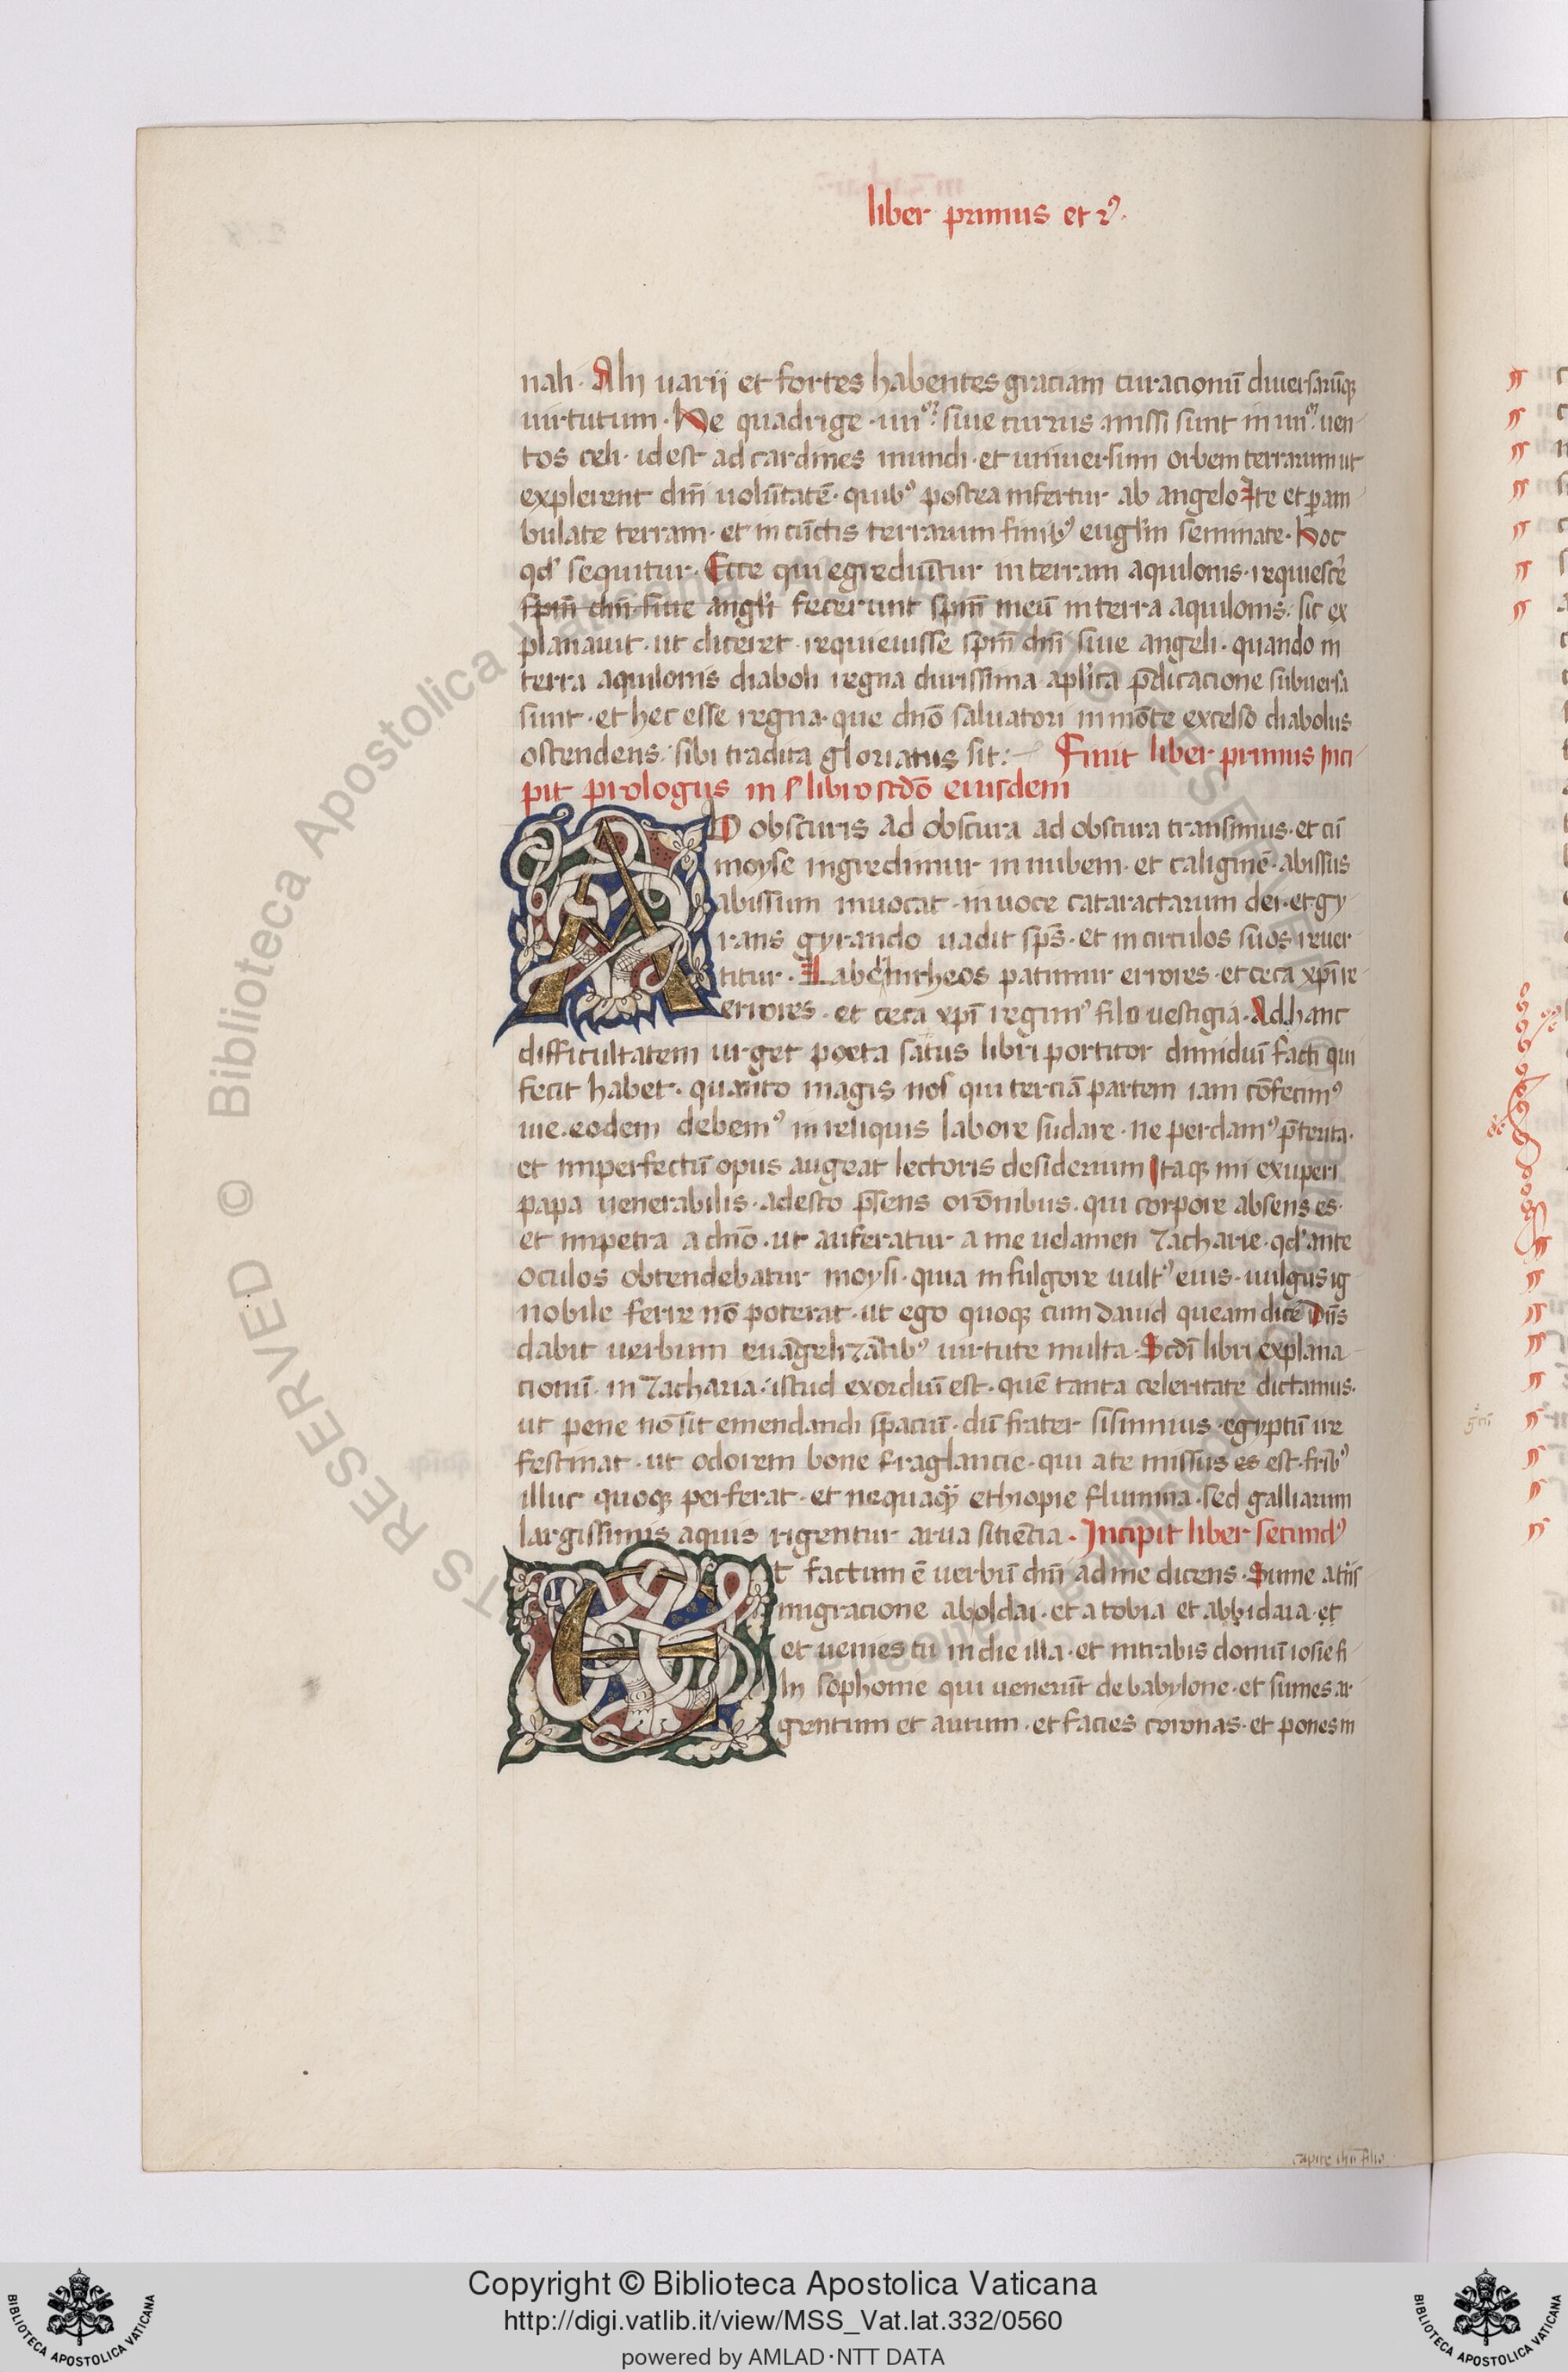 liber primus et 2ꝰ.
nali. Alij uarij et fortes habentes graciam curacionū diuersarūqꝫ
uirtutum. He quadrige .iiiiᵒʳ. siue currus missi sunt in iiiiᵒʳ. uen-
tos celi. idest ad cardines mundi. et uniuersum orbem terrarum ut
explerent dnī uolūtatē. quibꝰ postea infertur ab angelo Ite et ꝑam-
bulate terram. et in cūctis terrarum finibꝰ euglīm seminate. Hoc
qd' sequitur. Ecce qui egrediūtur in terram aquilonis. requiescē
spm̄ dnī siue anglī fecerunt spm̄ meū in terra aquilonis. sic ex
planauit. ut diceret requieuisse spm̄ dnī siue angeli. quando in
terra aquilonis diaboli regna durissima aplīca p̄dicacione subuersa
sunt. et hec esse regna. que dnō saluatori in mōte excelso diabolus
ostendens. sibi tradita gloriatus sit. Finit liber primus Inci
pit prologus in s libro scdō eiusdem
AB obscuris ad obscura ad obscura transimus. et cū
moyse ingredimur in nubem. et caliginē. abissus
abissum inuocat. in uoce cataractarum dei. et gy
rans gyrando uadit sps̄. et in circulos suos reuer-
titur. Laberintheos patimur errores. et ceca xpī re-
errores. et ceca xpī regimꝰ filo uestigia. Ad hanc
difficultatem urget poeta satus libri portitor dimidiū facti qui
fecit habet. quanto magis nos qui terciā partem iam cōfecimꝰ
uie. eodem debemꝰ in reliquis labore sudare. ne perdamꝰ p̄terita.
et imperfectū opus augeat lectoris desiderium Itaqꝫ mi exuperi
papa uenerabilis. adesto p̄sens orōnibus. qui corpore absens es.
et impetra a dnō. ut auferatur a me uelamen Zacharie. qd' ante
oculos obtendebatur moysi. quia in fulgore uultꝰ eius. uulgus ig
nobile ferre nō poterat. ut ego quoqꝫ cum dauid queam dicē Dn̄s
dabit uerbum euāgelizātibꝰ uirtute multa. Scdī libri explana-
cionū. in Zacharia. istud exordiū est. quē tanta celeritate dictamus.
ut pene nō sit emendandi spaciū. dū frater sisinnius. egyptū ire
festinat. ut odorem bone fraglancie. qui a te missus es est. frībꝰ
illuc quoqꝫ perferat. et nequaqꝫ ethiopie flumina. sed galliarum
largissimis aquis rigentur arua siciētia. Incipit liber secundꝰ
Et factum ē uerbū dnī ad me dicens. Sume a trās
migracione aboldai. et a tobia et abbidaia. et
et uenies tu in die illa. et intrabis domū iosie fi
lij sophonie qui uenerūt de babylone. et sumes ar-
gentum et aurum. et facies coronas. et pones in
capite ihū filio
Biblioteca Apostolica Vaticana
Copyright © Biblioteca Apostolica Vaticana
http://digi.vatlib.it/view/MSS_Vat.lat.332/0560
powered by AMLAD·NTT DATA